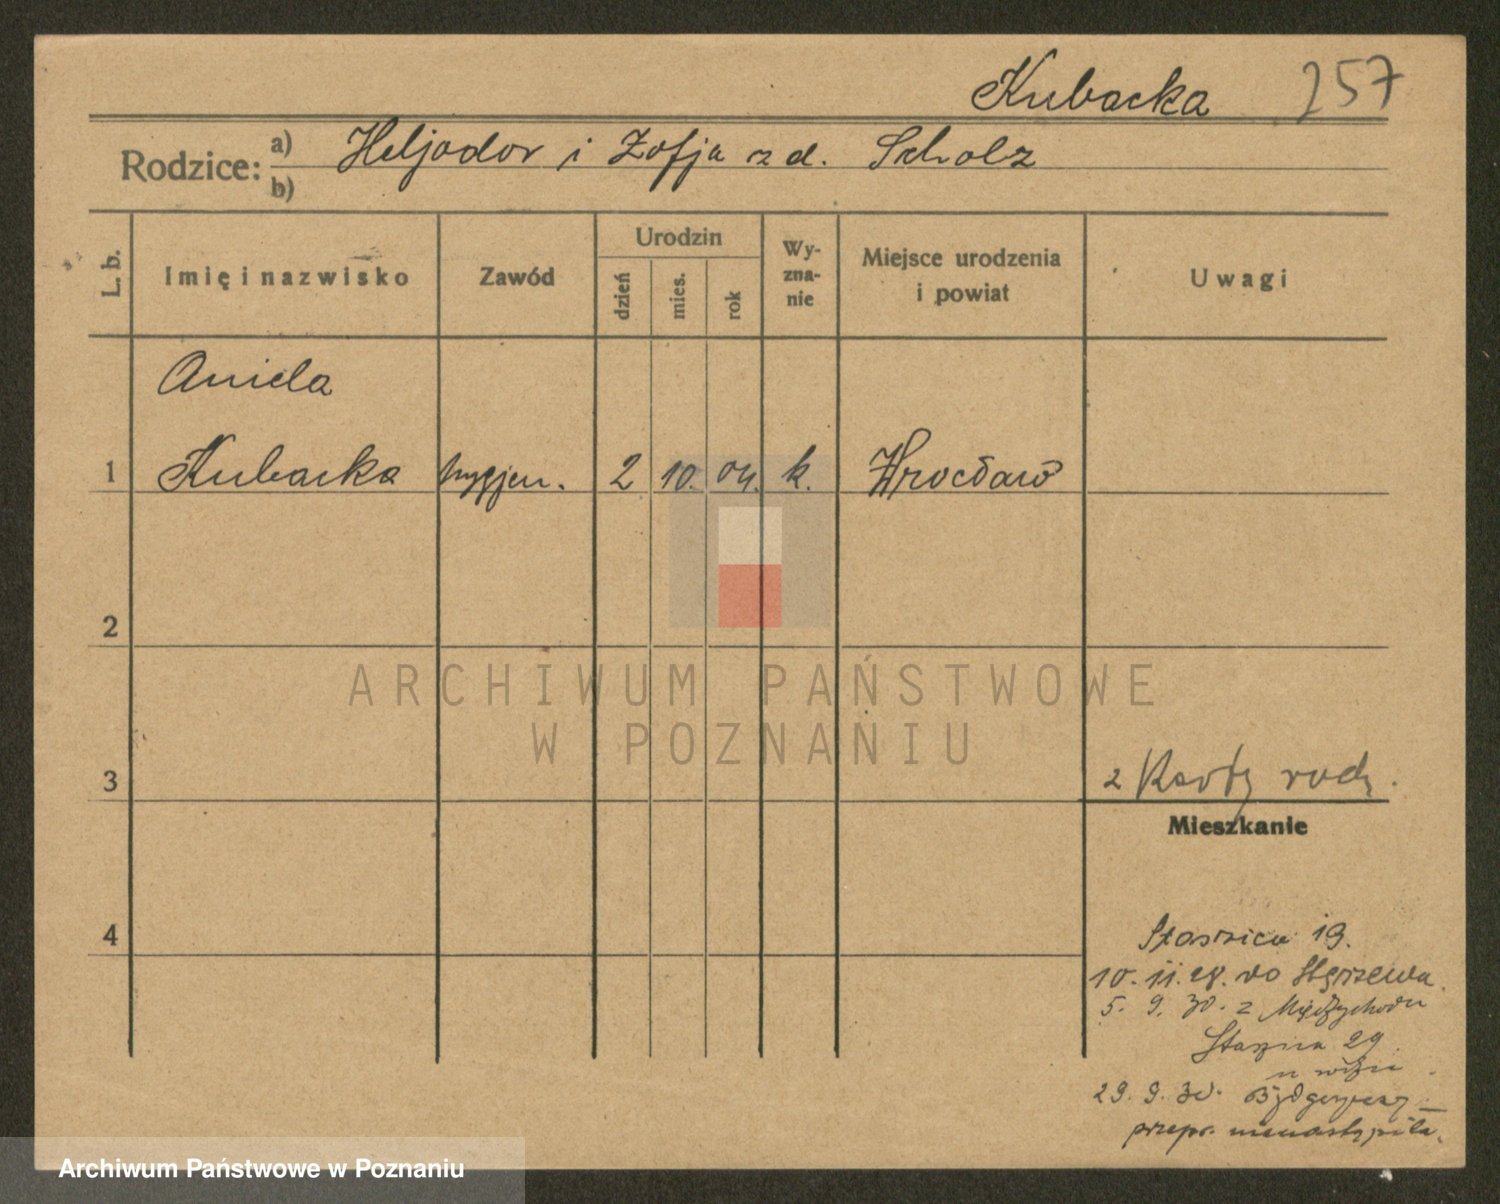 Kubacka 257
Rodzice: a) Heljodor i Zofja z d. Scholz
b)
L. b. Imię i nazwisko Zawód Urodzin dzień mies. rok Wyznanie Miejsce urodzenia i powiat Uwagi
Aniela
1 Kubacka hygjen. 2 10. 04. k. Wrocław
2
3 2 Karty rodz.
Mieszkanie
4
Staszica 19.
10. 11. 28. do
5. 9. 30. z Międzychodu
Staszica 29.
29. 9. 30. Bydgoszczy
przepr. nienastąpiła.
ARCHIWUM PAŃSTWOWE
W POZNANIU
Archiwum Państwowe w Poznaniu